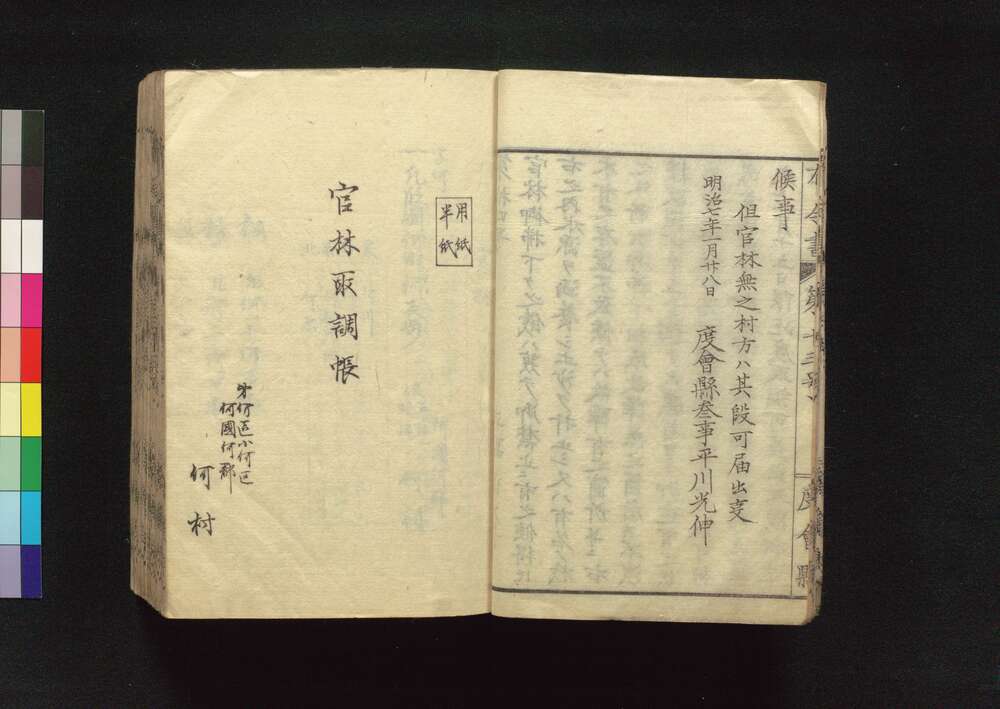 候事
但官林無之村方ハ其段可届出事
明治七年一月廿八日
度會縣叁事平川光伸
度會縣
用紙
半紙
官林取調帳
第何區小何區
何國何郡
何村